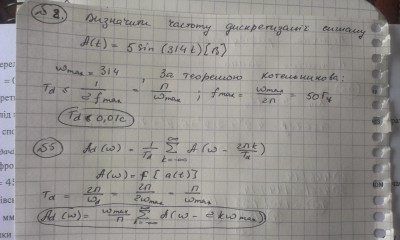 D 2. Визначити частоту дискретизації сигналу
A(t) = 5 sin(314 t) [В]
ωmax = 314 ; За теоремою котельникова:
Td ≤ 1/2fmax = π/ωmax ; fmax = ωmax/2π = 50Гц
Td ≤ 0,01с
D5 Ad(ω) = 1/Td ∞∑k=-∞ A(ω - 2πk/Td)
A(ω) = F[a(t)]
Td = 2π/ωd = 2π/2ωmax = π/ωmax
Ad(ω) = ωmax/π ∞∑k=-∞ A(ω - 2kωmax)